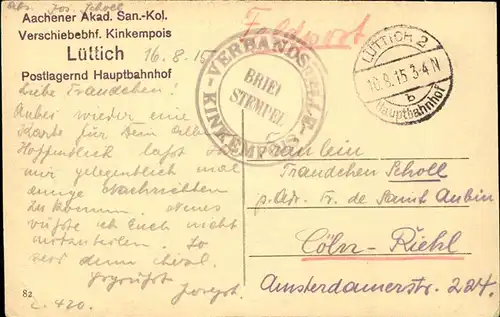 Abs. Jos. Scholl
Aachener Akad. San.-Kol.
Verschiebebhf. Kinkempois
Lüttich
Postlagernd Hauptbahnhof
16.8.15
Feldpost
VERBANDS
KINKEMPOIS
BRIEF
STEMPEL
LÜTTICH 2
16.8.15 3-4 N
b
Hauptbahnhof
Liebe Traudchen!
Anbei wieder eine
Karte für Dein Album
Hoffentlich laßt Ihr
mir gelegentlich mal
einige Nachrichten
zukommen. Neues
wüßte ich Euch nicht
mitzuteilen. So
seid denn
gegrüßt
Joseph.
Fräulein
Traudchen Scholl
p. Adr. Fr. de Saint Aubin
Cöln-Riehl
Amsterdamerstr. 224.
82
L. 420.